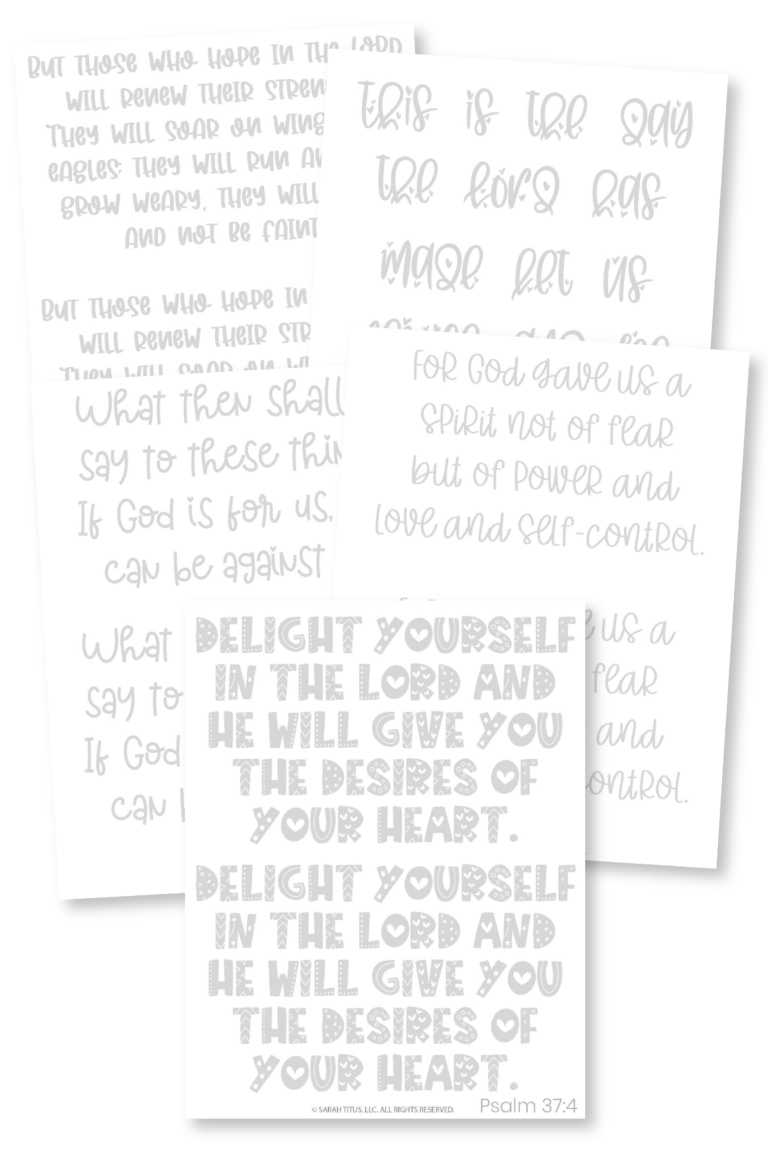 BUT THOSE WHO HOPE IN THE LORD
WILL RENEW THEIR STREN
THEY WILL SOAR ON WING
EAGLES; THEY WILL RUN AN
GROW WEARY, THEY WILL
AND NOT BE FAINT
BUT THOSE WHO HOPE IN
WILL RENEW THEIR STR
THEY WILL SOAR ON WI
this is the day
the lord has
made let us
What then shall
say to these thin
If God is for us,
can be against
What
say to
If God
can
FOR God gave us a
SPIRit not of feaR
but of PoweR and
Love and SeLf-contRoL.
us a
feaR
and
ontRoL.
DELIGHT YOURSELF
IN THE LORD AND
HE WILL GIVE YOU
THE DESIRES OF
YOUR HEART.
DELIGHT YOURSELF
IN THE LORD AND
HE WILL GIVE YOU
THE DESIRES OF
YOUR HEART.
© SARAH TITUS, LLC. ALL RIGHTS RESERVED. Psalm 37:4